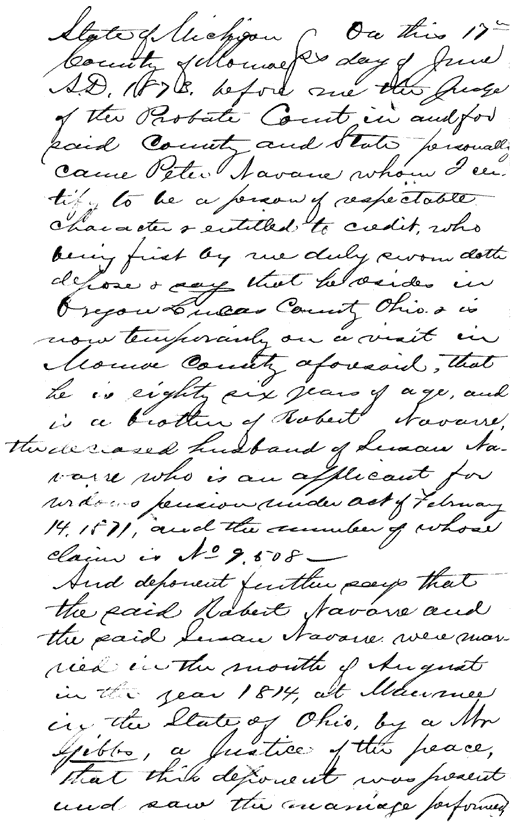 State of Michigan } On this 17th
County of Monroe } ss day of June
A.D. 1873. before me the Judge
of the Probate Court in and for
said County and State personally
came Peter Navarre whom I cer-
tify to be a person of respectable
character & entitled to credit, who
being first by me duly sworn doth
depose & say that he resides in
Oregon Lucas County Ohio. & is
now temporarily on a visit in
Monroe County aforesaid, that
he is eighty six years of age, and
is a brother of Robert Navarre,
the deceased husband of Susan Na-
varre who is an applicant for
widows pension under act of February
14, 1871, and the number of whose
claim is No 9.508 —
And deponent further says that
the said Robert Navarre and
the said Susan Navarre were mar-
ried in the month of August
in the year 1814, at Maumee
in the State of Ohio, by a Mr
Gibbs, a Justice of the peace,
that this deponent was present
and saw the marriage performed